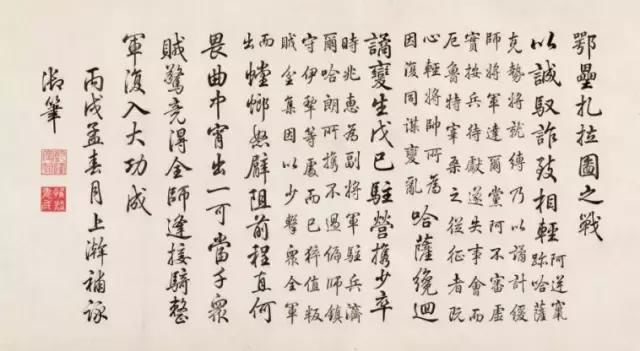 鄂壘扎拉圖之戰
以誠馭詐致相輕
阿逆竄
跡哈薩
克勢將就縛乃以譎計緩
師將軍達爾黨阿不審虛
實按兵待獻遂失事會而
厄魯特宰桑之從征者既
心輕將帥所為
因復同謀變亂
哈薩纔迴
譎變生戊已駐營携少卒
時兆惠為副將軍駐兵濟
爾哈朗所携不過偏師鎮
守伊犂等處而已猝值叛
賊坌集因以少擊衆全軍
而
出
螳螂怒臂阻前程直何
畏曲中宵出一可當千衆
賊驚竟得全師逢接騎整
軍復入大功成
丙戌孟春月上澣補詠
御筆